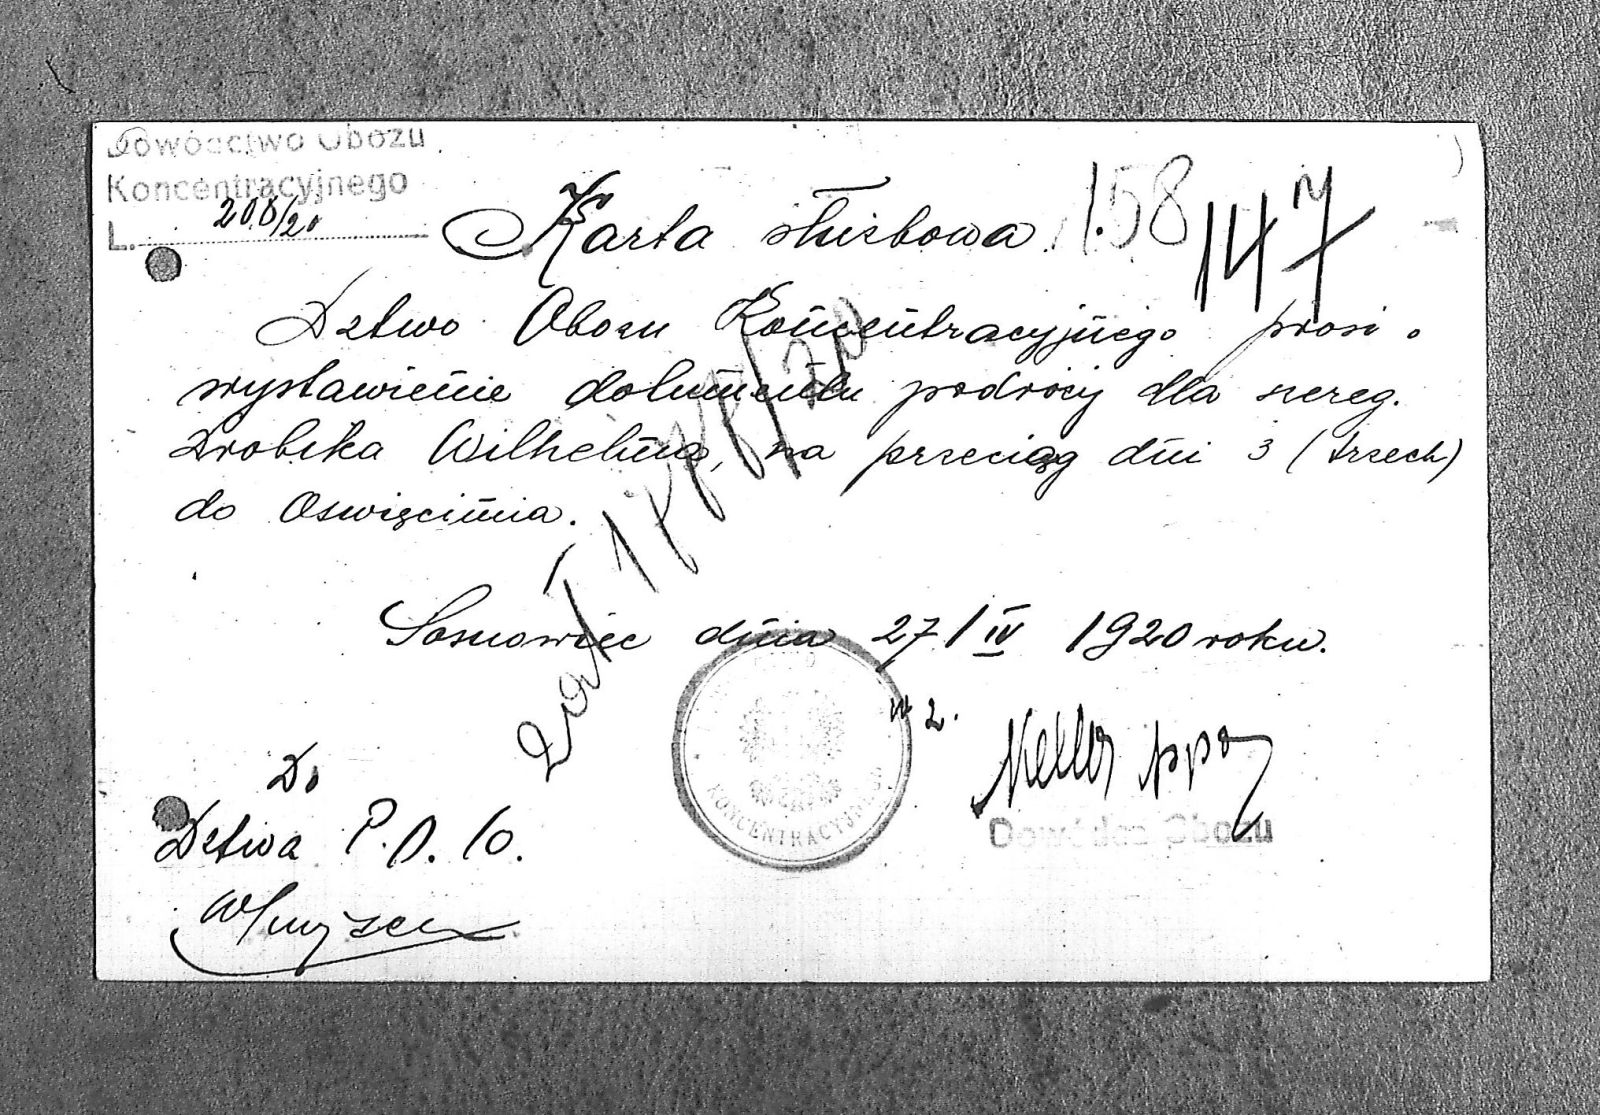 Dowództwo Obozu
Koncentracyjnego
L. 208/20
Karta służbowa
158
147
Dztwo Obozu Koncentracyjnego prosi o
wystawienie dokumentu podróży dla szereg.
Wilhelma, na przeciąg dni 3 (trzech)
do Oswięcimia.
zał
Sosnowiec dnia 27/IV 1920 roku.
w z.
Keller ppor
Dowódca Obozu
KONCENTRACYJNEGO
Do
Dztwa P.O.
w miejscu